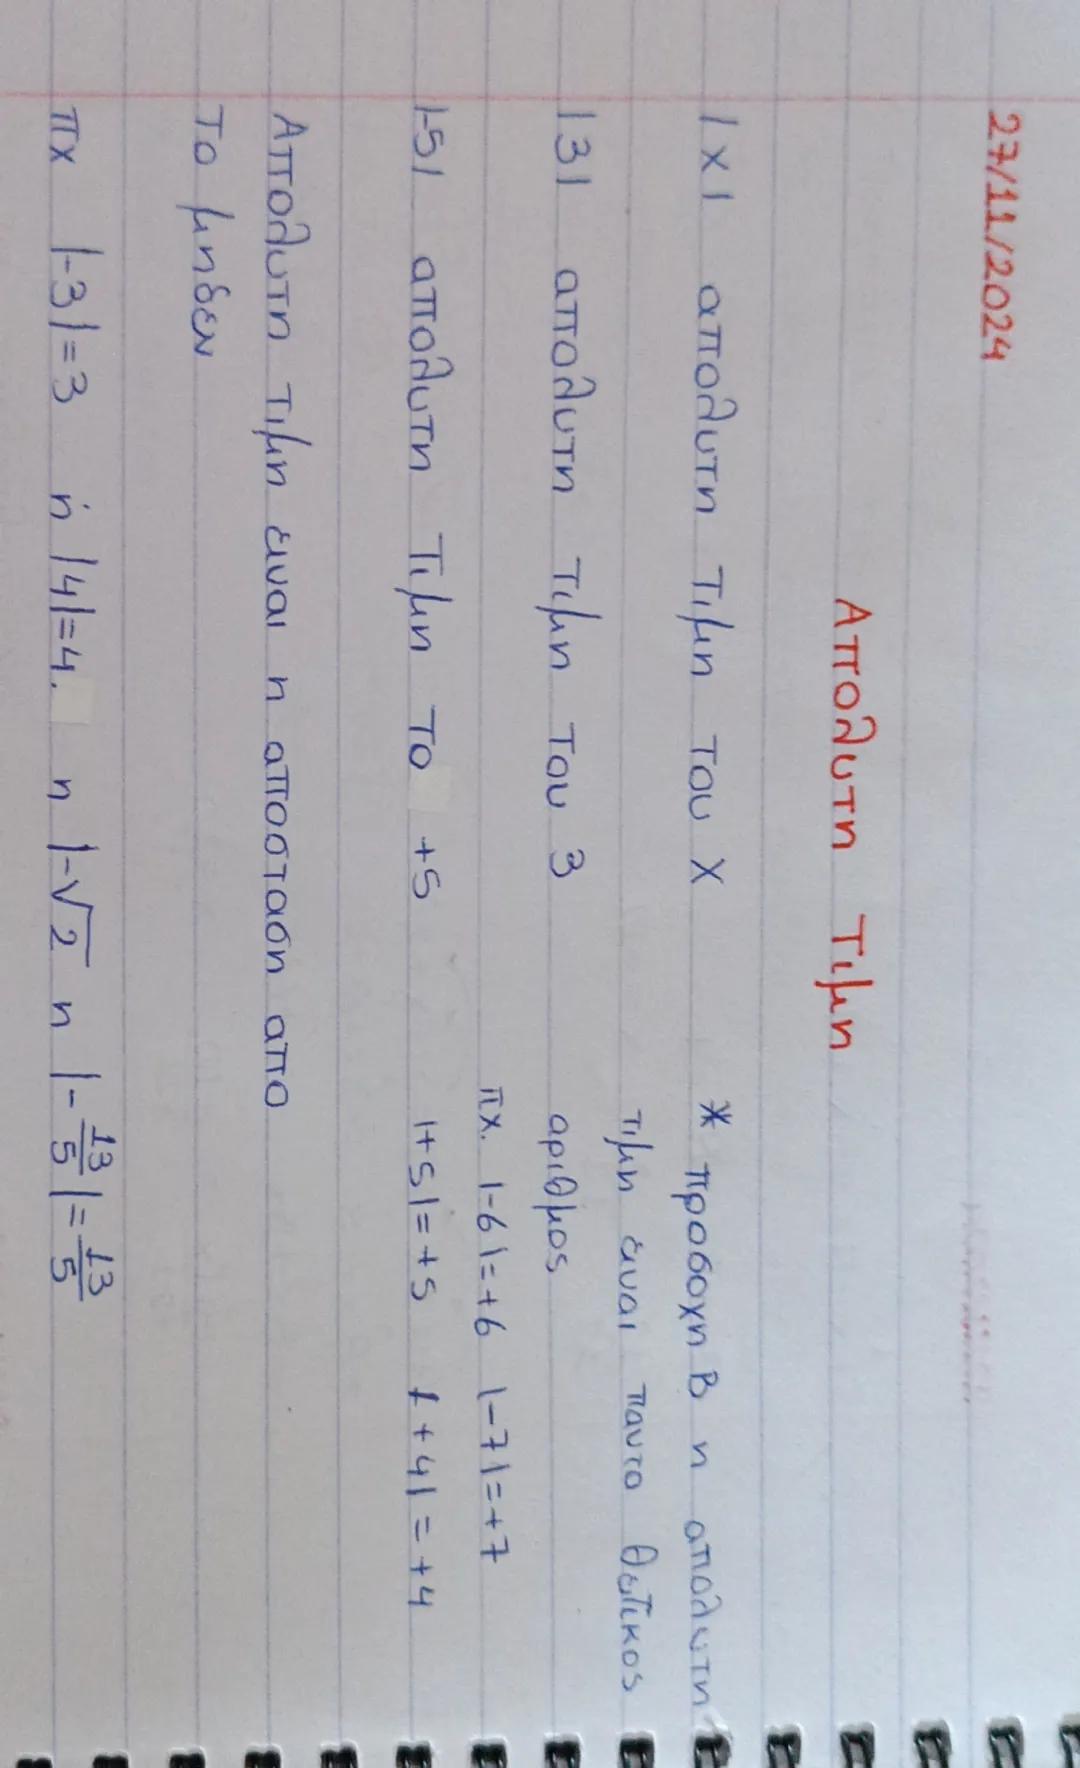 27/11/2024
Απολυτη Τιμη
|x| απολυτη Τιμη του Χ
* προσοχη Β η απολυτη
τιμη ειναι παντο θετικος
|3| απολυτη τιμη του 3
αριθμος
πχ. |-6|=+6 |-7|=+7
|-5| απολυτη Τιμη το +5
|+5|=+5 |+4|=+4
Απολυτη τιμη ειναι η αποσταση απο
Το μηδεν
πχ |-3|=3 ή |4|=4. η |-√2 η |-13/5|=13/5